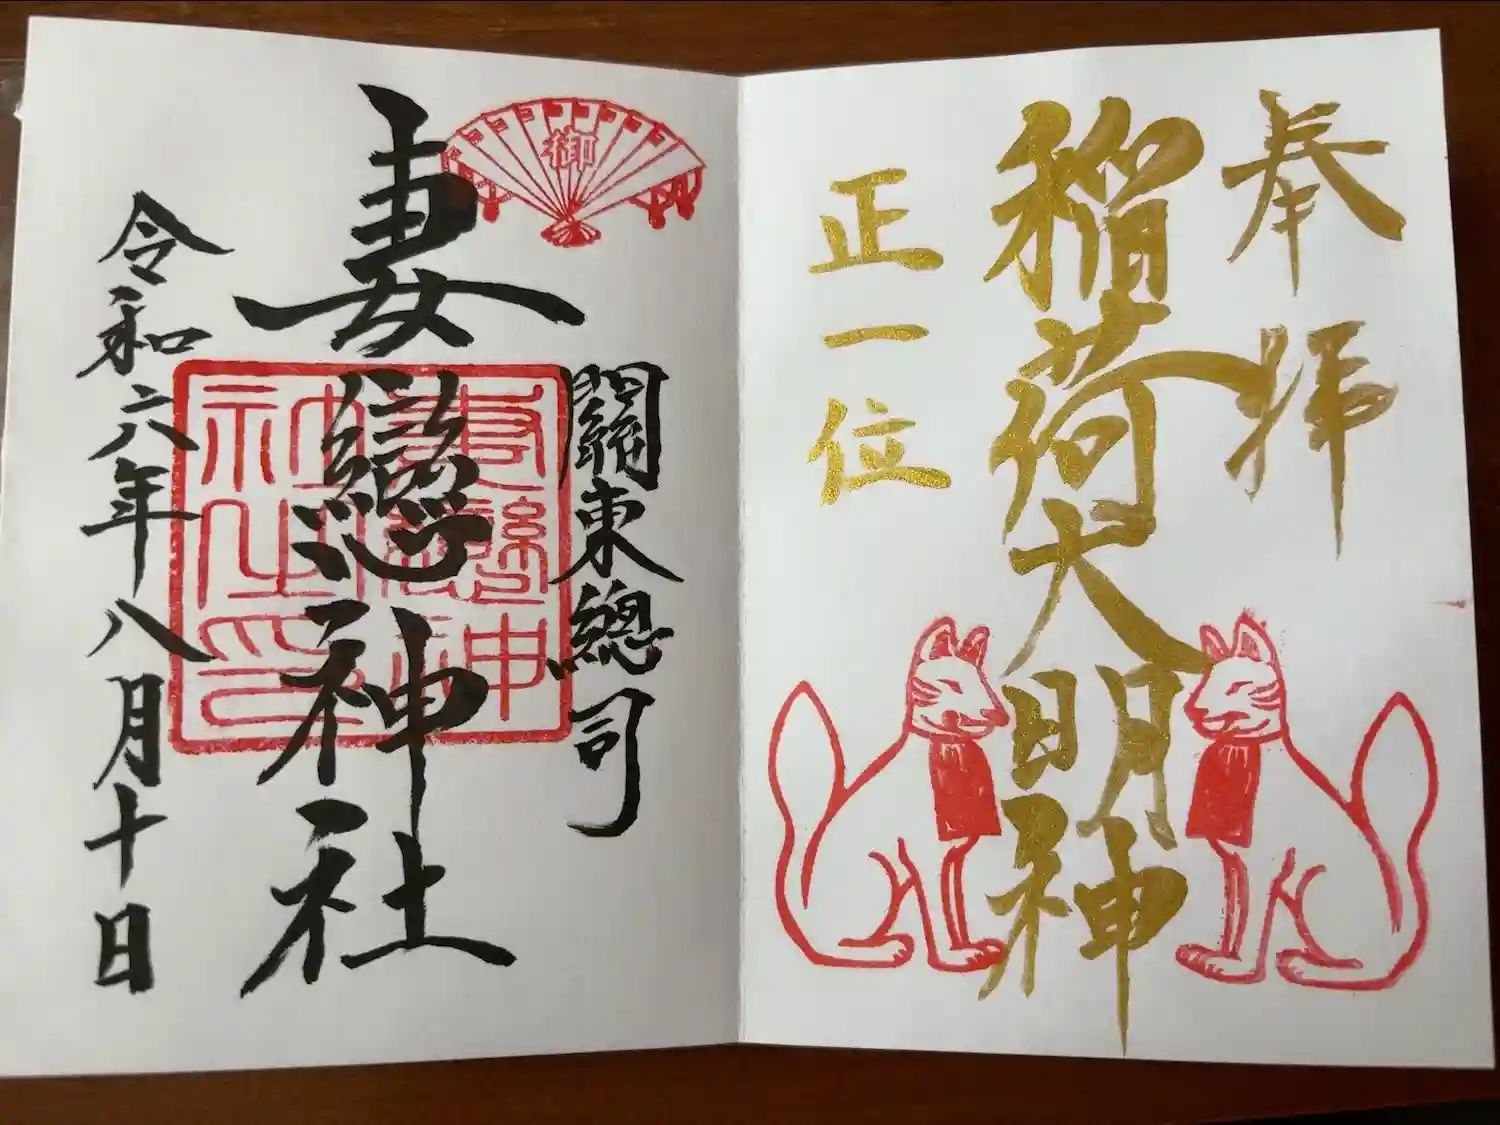 奉拝
稲荷大明神
正一位
御
關東總司
妻戀神社
令和六年八月十日